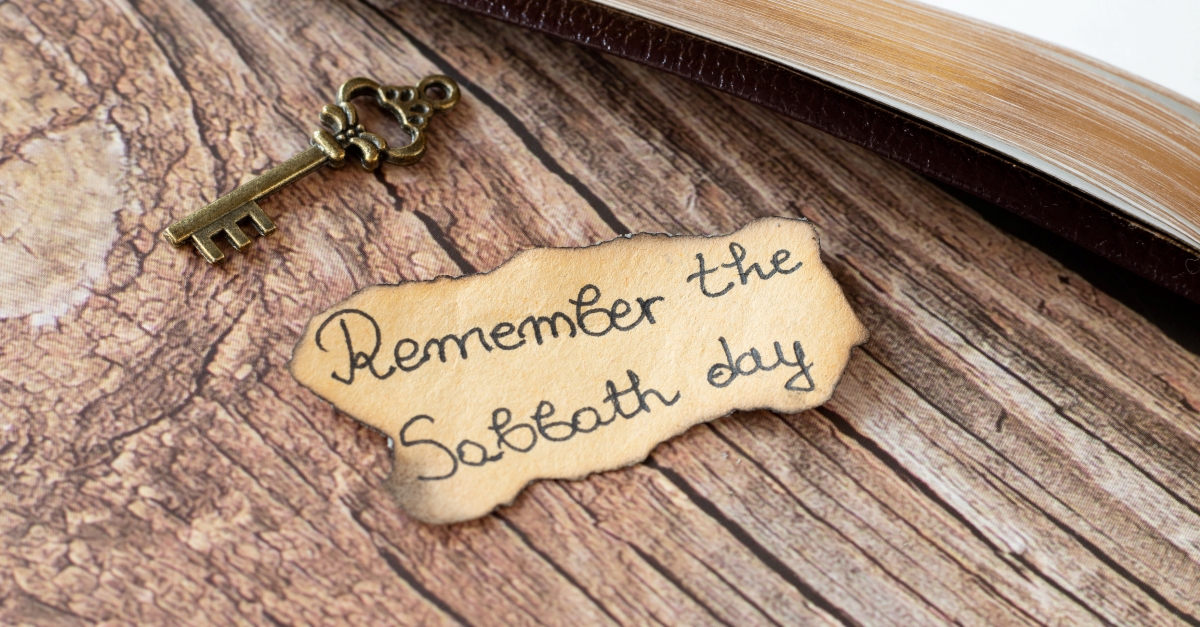 Remember the
Sabbath day